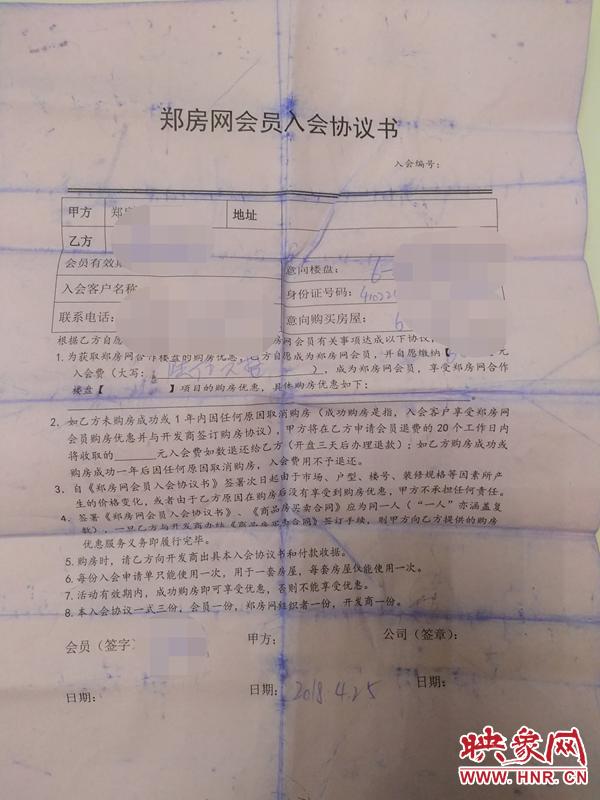 郑房网会员入会协议书
入会编号：
甲方 郑 地址
乙方
会员有效 意向楼盘： 6
入会客户名称 身份证号码：
联系电话： 意向购买房屋： 6
根据乙方自愿 房网会员有关事项达成以下协议，
1、为获取郑房网合作楼盘的购房优惠，乙方自愿成为郑房网会员，并自愿缴纳【 元
入会费（大写： ），成为郑房网会员，享受郑房网合作
楼盘【 】项目的购房优惠，具体购房优惠如下：
2、如乙方未购房成功或1年内因任何原因取消购房（成功购房是指，入会客户享受郑房网
会员购房优惠并与开发商签订购房协议），甲方将在乙方申请会员退费的20个工作日内
将收取的______元入会费如数退还给乙方（开盘三天后办理退款）；如乙方购房成功或
购房成功一年后因任何原因取消购房，入会费用不予退还。
3、自《郑房网会员入会协议书》签署次日起由于市场、户型、楼号、装修规格等因素所产
生的价格变化，或者由于乙方原因在购房后没有享受到购房优惠，甲方不承担任何责任。
4、签署《郑房网会员入会协议书》、《商品房买卖合同》应为同一人（“一人”亦涵盖复
数），一旦乙方与开发商办结《商品房买卖合同》签订手续，则甲方向乙方提供的购房
优惠服务义务即履行完毕。
5、购房时，请乙方向开发商出具本入会协议书和付款收据。
6、每份入会申请单只能使用一次，用于一套房屋，每套房屋仅能使用一次。
7、活动有效期内，成功购房即可享受优惠，否则不能享受优惠。
8、本入会协议一式三份，会员一份，郑房网组织者一份，开发商一份。
会员（签字 甲方： 公司（签章）：
日期： 日期： 2018.4.25 日期：
映象网
WWW.HNR.CN